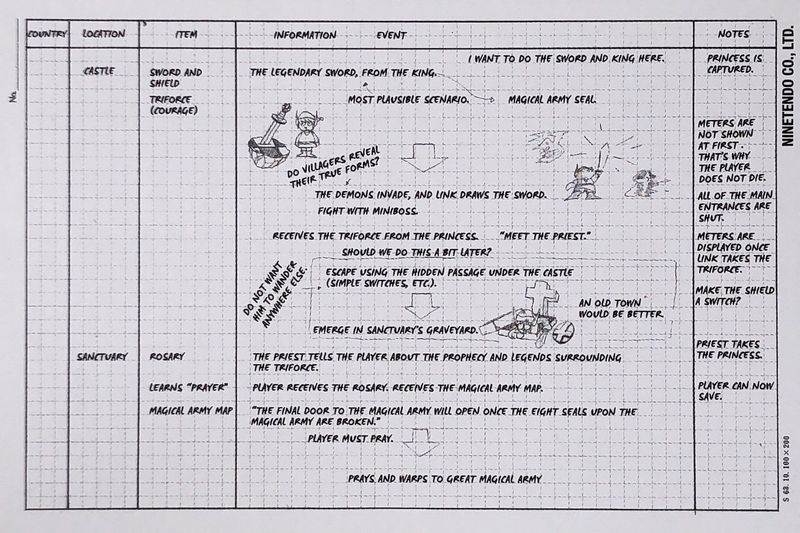 COUNTRY LOCATION ITEM INFORMATION EVENT NOTES
I WANT TO DO THE SWORD AND KING HERE.
PRINCESS IS
CAPTURED.
CASTLE
SWORD AND
SHIELD
THE LEGENDARY SWORD, FROM THE KING.
TRIFORCE
(COURAGE)
MOST PLAUSIBLE SCENARIO.
MAGICAL ARMY SEAL.
METERS ARE
NOT SHOWN
AT FIRST.
THAT'S WHY
THE PLAYER
DOES NOT DIE.
DO VILLAGERS REVEAL
THEIR TRUE FORMS?
THE DEMONS INVADE, AND LINK DRAWS THE SWORD.
FIGHT WITH MINIBOSS.
ALL OF THE MAIN
ENTRANCES ARE
SHUT.
RECEIVES THE TRIFORCE FROM THE PRINCESS. "MEET THE PRIEST."
SHOULD WE DO THIS A BIT LATER?
METERS ARE
DISPLAYED ONCE
LINK TAKES THE
TRIFORCE.
DO NOT WANT
HIM TO WANDER
ANYWHERE ELSE.
ESCAPE USING THE HIDDEN PASSAGE UNDER THE CASTLE
(SIMPLE SWITCHES, ETC.)
MAKE THE SHIELD
A SWITCH?
AN OLD TOWN
WOULD BE BETTER.
EMERGE IN SANCTUARY'S GRAVEYARD.
PRIEST TAKES
THE PRINCESS.
SANCTUARY ROSARY
THE PRIEST TELLS THE PLAYER ABOUT THE PROPHECY AND LEGENDS SURROUNDING
THE TRIFORCE.
LEARNS "PRAYER"
PLAYER RECEIVES THE ROSARY. RECEIVES THE MAGICAL ARMY MAP.
PLAYER CAN NOW
SAVE.
MAGICAL ARMY MAP
"THE FINAL DOOR TO THE MAGICAL ARMY WILL OPEN ONCE THE EIGHT SEALS UPON THE
MAGICAL ARMY ARE BROKEN."
PLAYER MUST PRAY.
PRAYS AND WARPS TO GREAT MAGICAL ARMY
No.
NINETENDO CO., LTD.
S 63. 10. 100×200